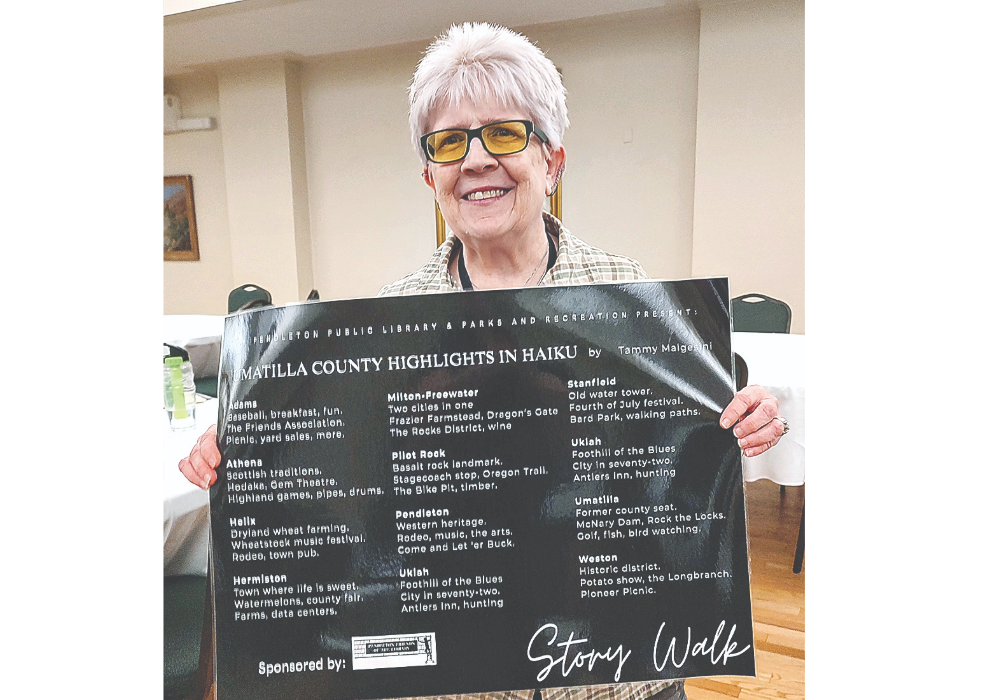 PENDLETON PUBLIC LIBRARY & PARKS AND RECREATION PRESENT:
UMATILLA COUNTY HIGHLIGHTS IN HAIKU by Tammy Malgesini
Adams
Baseball, breakfast, fun.
The Friends Association.
Picnic, yard sales, more.
Athena
Scottish traditions.
Hodaka, Gem Theatre.
Highland games, pipes, drums.
Helix
Dryland wheat farming.
Wheatstock music festival.
Rodeo, town pub.
Hermiston
Town where life is sweet.
Watermelons, county fair.
Farms, data centers.
Milton-Freewater
Two cities in one
Frazier Farmstead, Dragon's Gate
The Rocks District, wine
Pilot Rock
Basalt rock landmark.
Stagecoach stop, Oregon Trail.
The Bike Pit, timber.
Pendleton
Western heritage.
Rodeo, music, the arts.
Come and Let 'er Buck.
Ukiah
Foothill of the Blues
City in seventy-two.
Antlers Inn, hunting
Stanfield
Old water tower.
Fourth of July festival.
Bard Park, walking paths.
Ukiah
Foothill of the Blues
City in seventy-two.
Antlers Inn, hunting
Umatilla
Former county seat.
McNary Dam, Rock the Locks.
Golf, fish, bird watching.
Weston
Historic district.
Potato show, the Longbranch.
Pioneer Picnic.
Sponsored by:
PENDLETON FRIENDS
OF THE LIBRARY
Story Walk